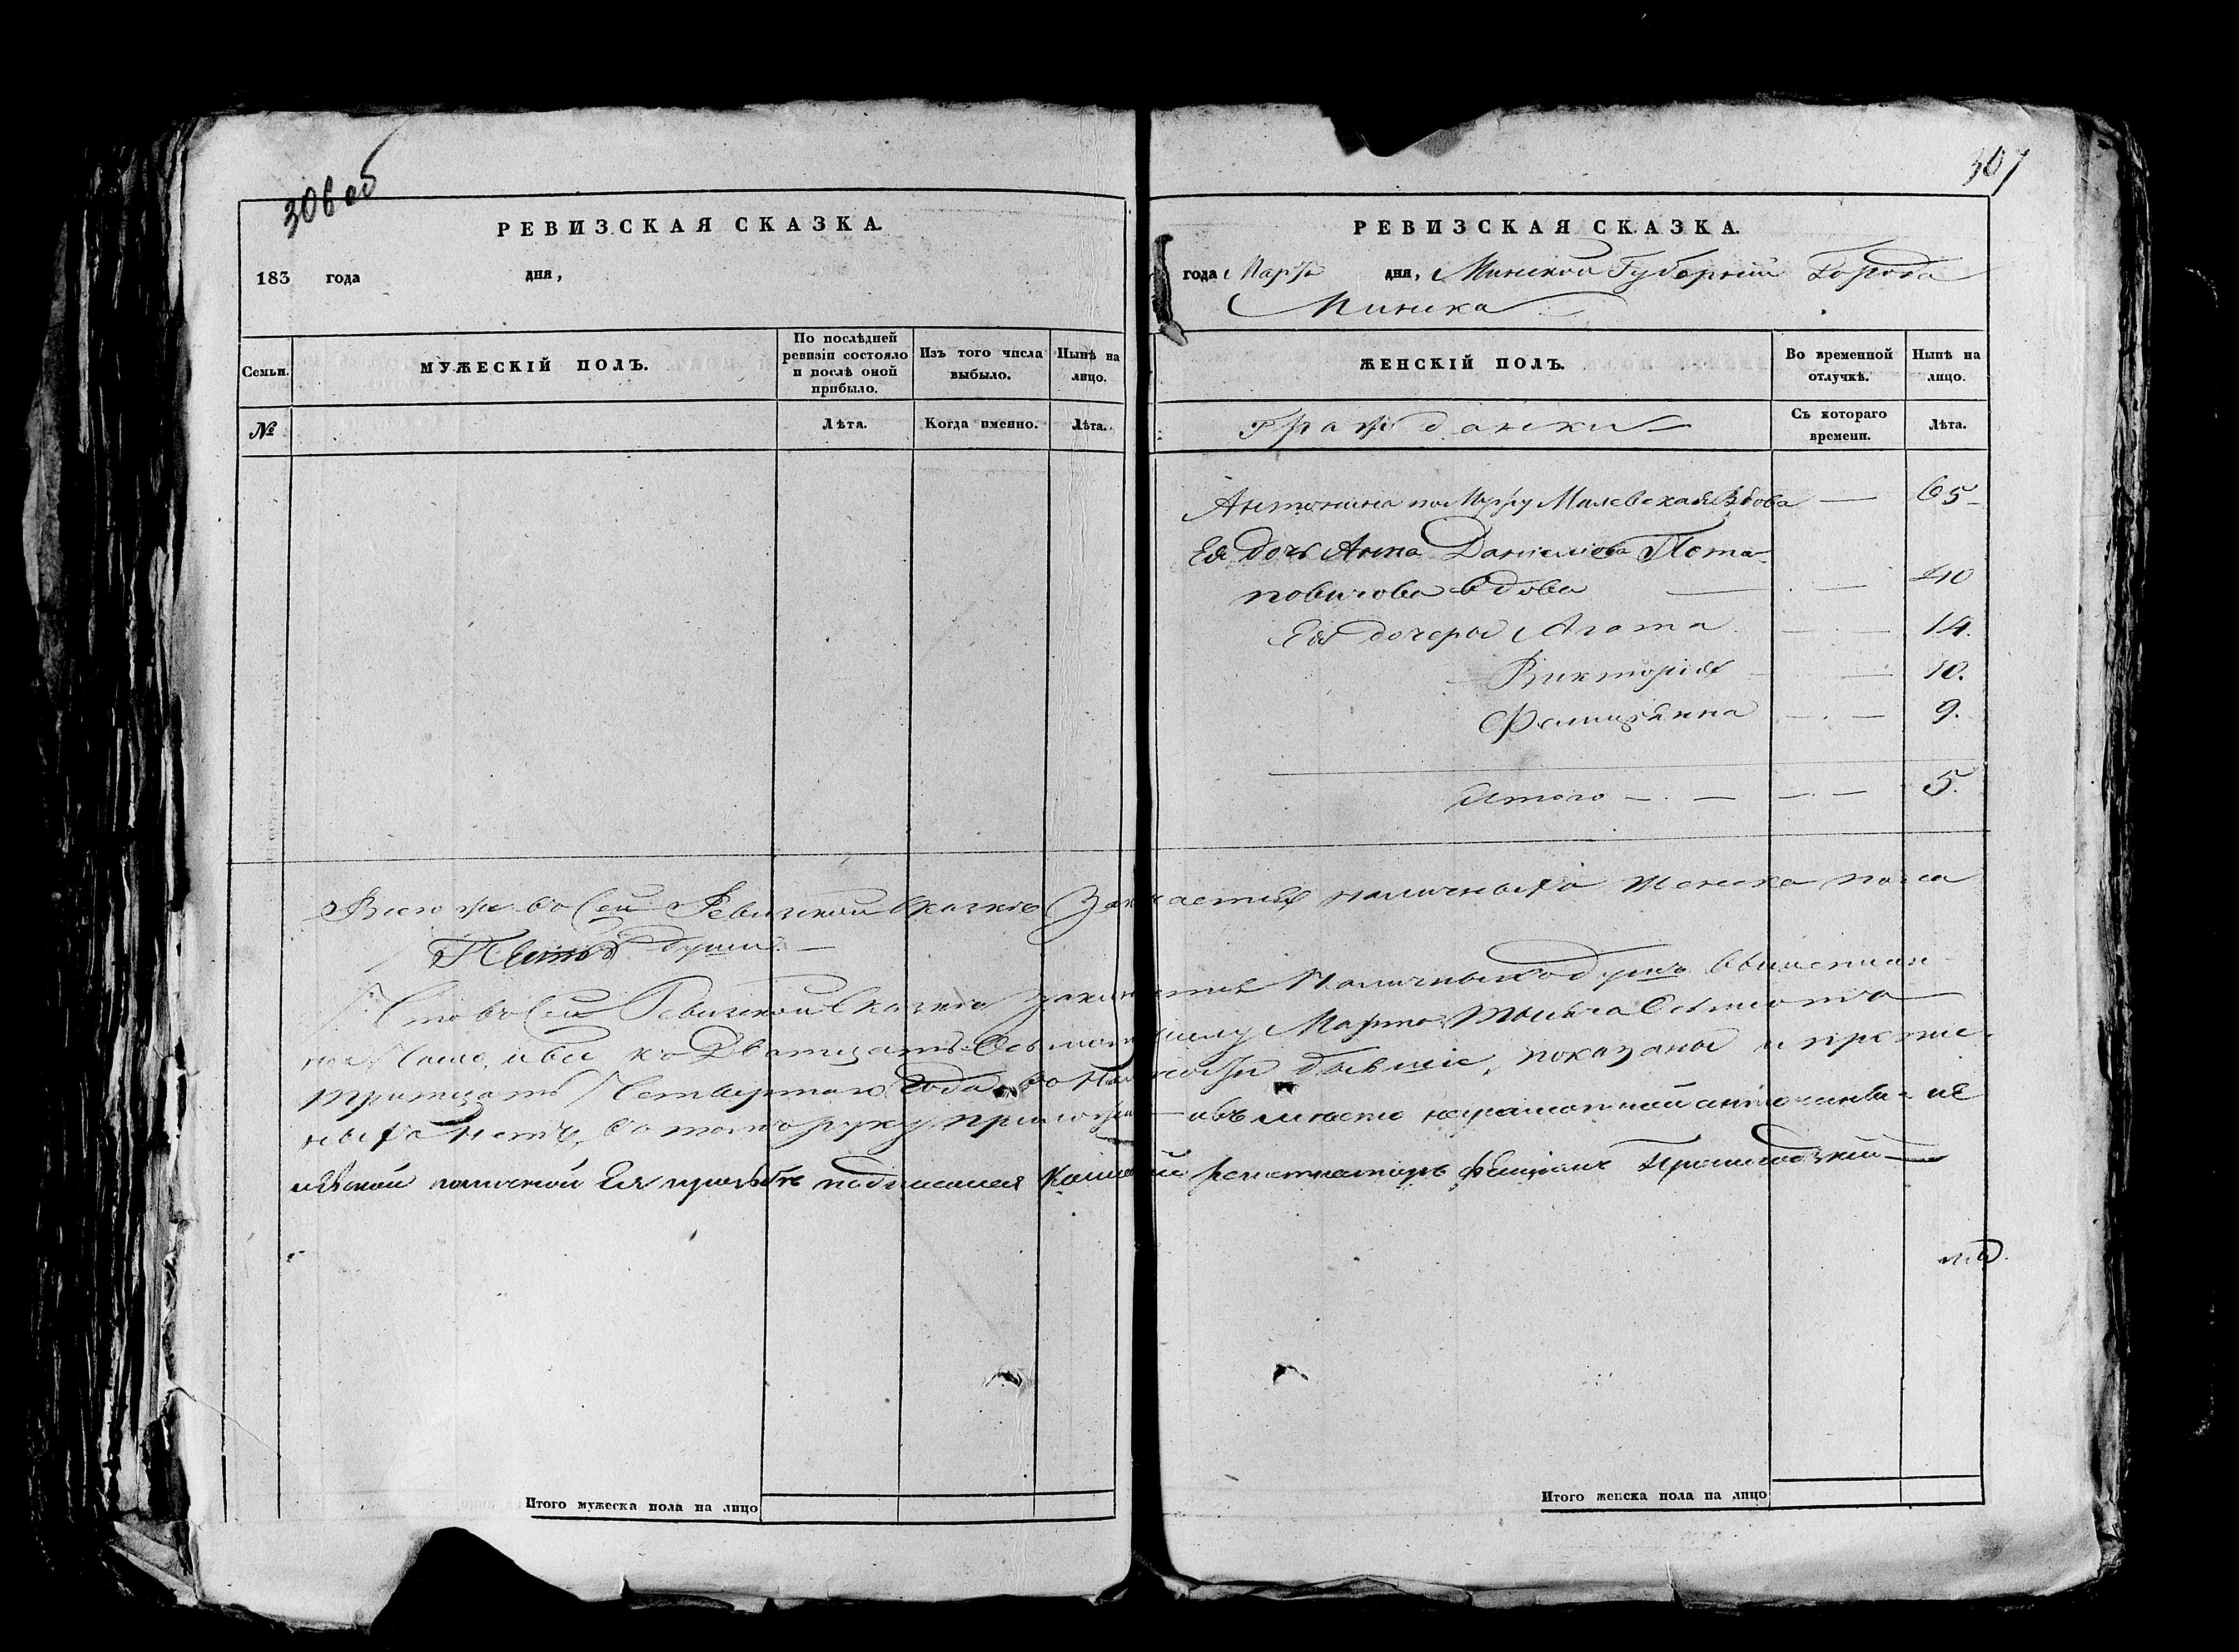 306 об
РЕВИЗСКАЯ СКАЗКА.
183 года дня,
Семьи.
МУЖЕСКІЙ ПОЛЪ.
По послѣдней ревизіи состояло и послѣ оной прибыло.
Изъ того числа выбыло.
Нынѣ на лицо.
№
Лѣта.
Когда именно.
Лѣта.
307
РЕВИЗСКАЯ СКАЗКА.
года Марта дня, Минской Губерніи Города
Минска
ЖЕНСКІЙ ПОЛЪ.
Во временной отлучкѣ.
Нынѣ на лицо.
Гражданки
Съ котораго времени.
Лѣта.
Антонина по Мужу Малевская Вдова — 65
Ея дочь Анна Даніелова Пота-
повичова вдова — 40
Ея дочери Агата — 14.
Викторія — 10.
Фелиціянна — 9.
Итого — 5.
Всего же въ Сей Ревизской Сказкѣ Заключается наличныхъ женска пола
Пять душъ. —
Что въ Сей Ревизской Сказкѣ заключается Наличныхъ душъ
все къ Двадцать Числу Марта Тысяча Осьмсотъ
тридцать Четвертаго Года на бывшіе, показаны и
нѣтъ, въ томъ руку вмѣсто неграмотной
Ея прозьбѣ подписался регистраторъ
Итого мужеска пола на лицо
Итого женска пола на лицо